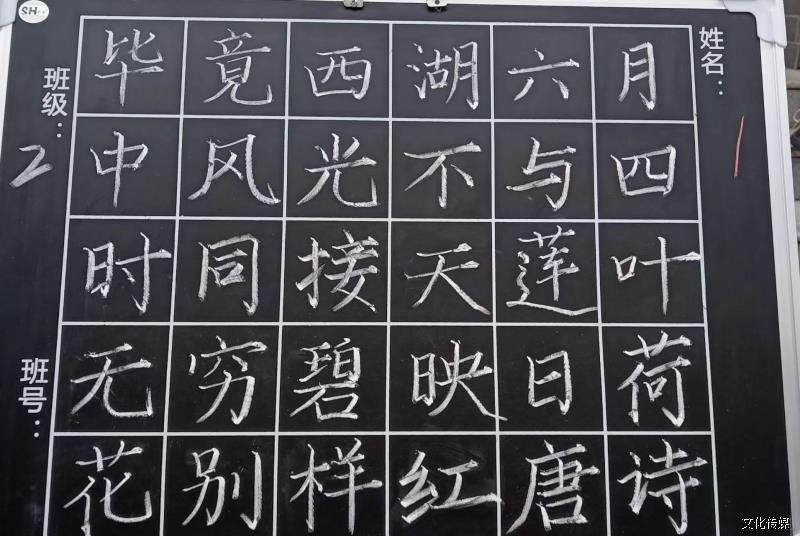 SH
姓名：
1
班级：
2
班号：
毕竟西湖六月
中风光不与四
时同接天莲叶
无穷碧映日荷
花别样红唐诗
文化传媒